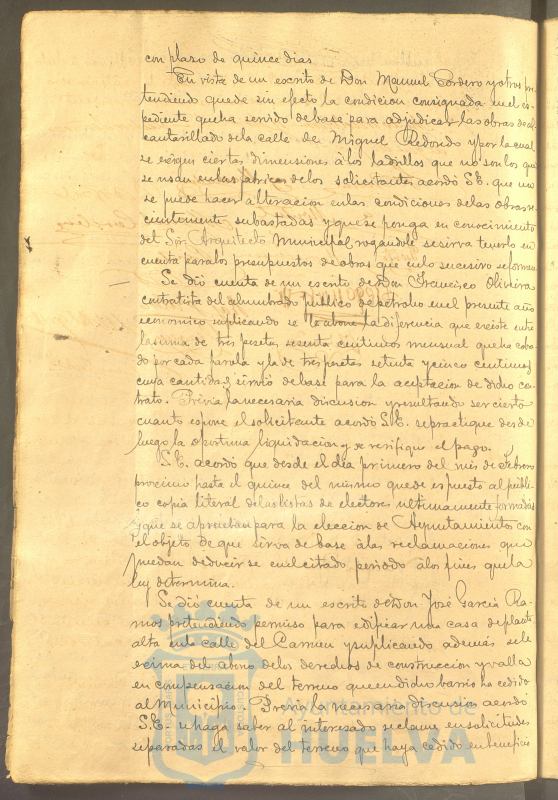 con plazo de quince dias
En vista de un escrito de Don Manuel Cordero y otros pre
tendiendo quede sin efecto la condicion consignada en el es
pediente que ha servido de base para adjudicar las obras de al
cantarillado de la calle de Miguel Redondo y por la cual
se exigen ciertas dimensiones á los ladrillos que no son los que
se usan en las fabricas de los solicitantes acordó S.E. que no
se puede hacer alteracion en las condiciones de las obras re
cientemente subastadas y que se ponga en conocimiento
del Sor. Arquitecto Municipal rogandole se sirva tenerlo en
cuenta para los presupuestos de obras que en lo sucesivo se formen
Se dió cuenta de un escrito de Don Francisco Oliveira
contratista del alumbrado público de petroleo en el presente año
economico suplicando se le abone la diferencia que existe entre
la suma de tres pesetas sesenta centimos mensual que ha cobra
do por cada farola y la de tres pesetas setenta y cinco centimos
cuya cantidad sirvió de base para la aceptacion de dicho co
trato. Prévia la necesaria discusion y resultando ser cierto
cuanto espone el solicitante acordó S.E. se practique desde
luego la oportuna liquidacion y se verifique el pago.
S.E. acordó que desde el dia primero del mes de Febrero
procsimo hasta el quince del mismo quede espuesto al públi
co copia literal de las listas de electores ultimamente formadas
y que se aprueban para la eleccion de Ayuntamientos con
el objeto de que sirva de base á las reclamaciones que
puedan deducirse en el citado periodo á los fines que la
ley determina.
Se dió cuenta de un escrito de Don José García Ra
mos pretendiendo permiso para edificar una casa de planta
alta en la calle del Carmen y suplicando además se le
ecsima del abono de los derechos de construccion y valla
en compensacion del terreno que en dicho barrio ha cedido
al Municipio. Prévia la necesaria discusion acordó
S.E. se haga saber al interesado reclame en solicitudes
separadas el valor del terreno que haya cedido en beneficio
Ayuntamiento de
HUELVA